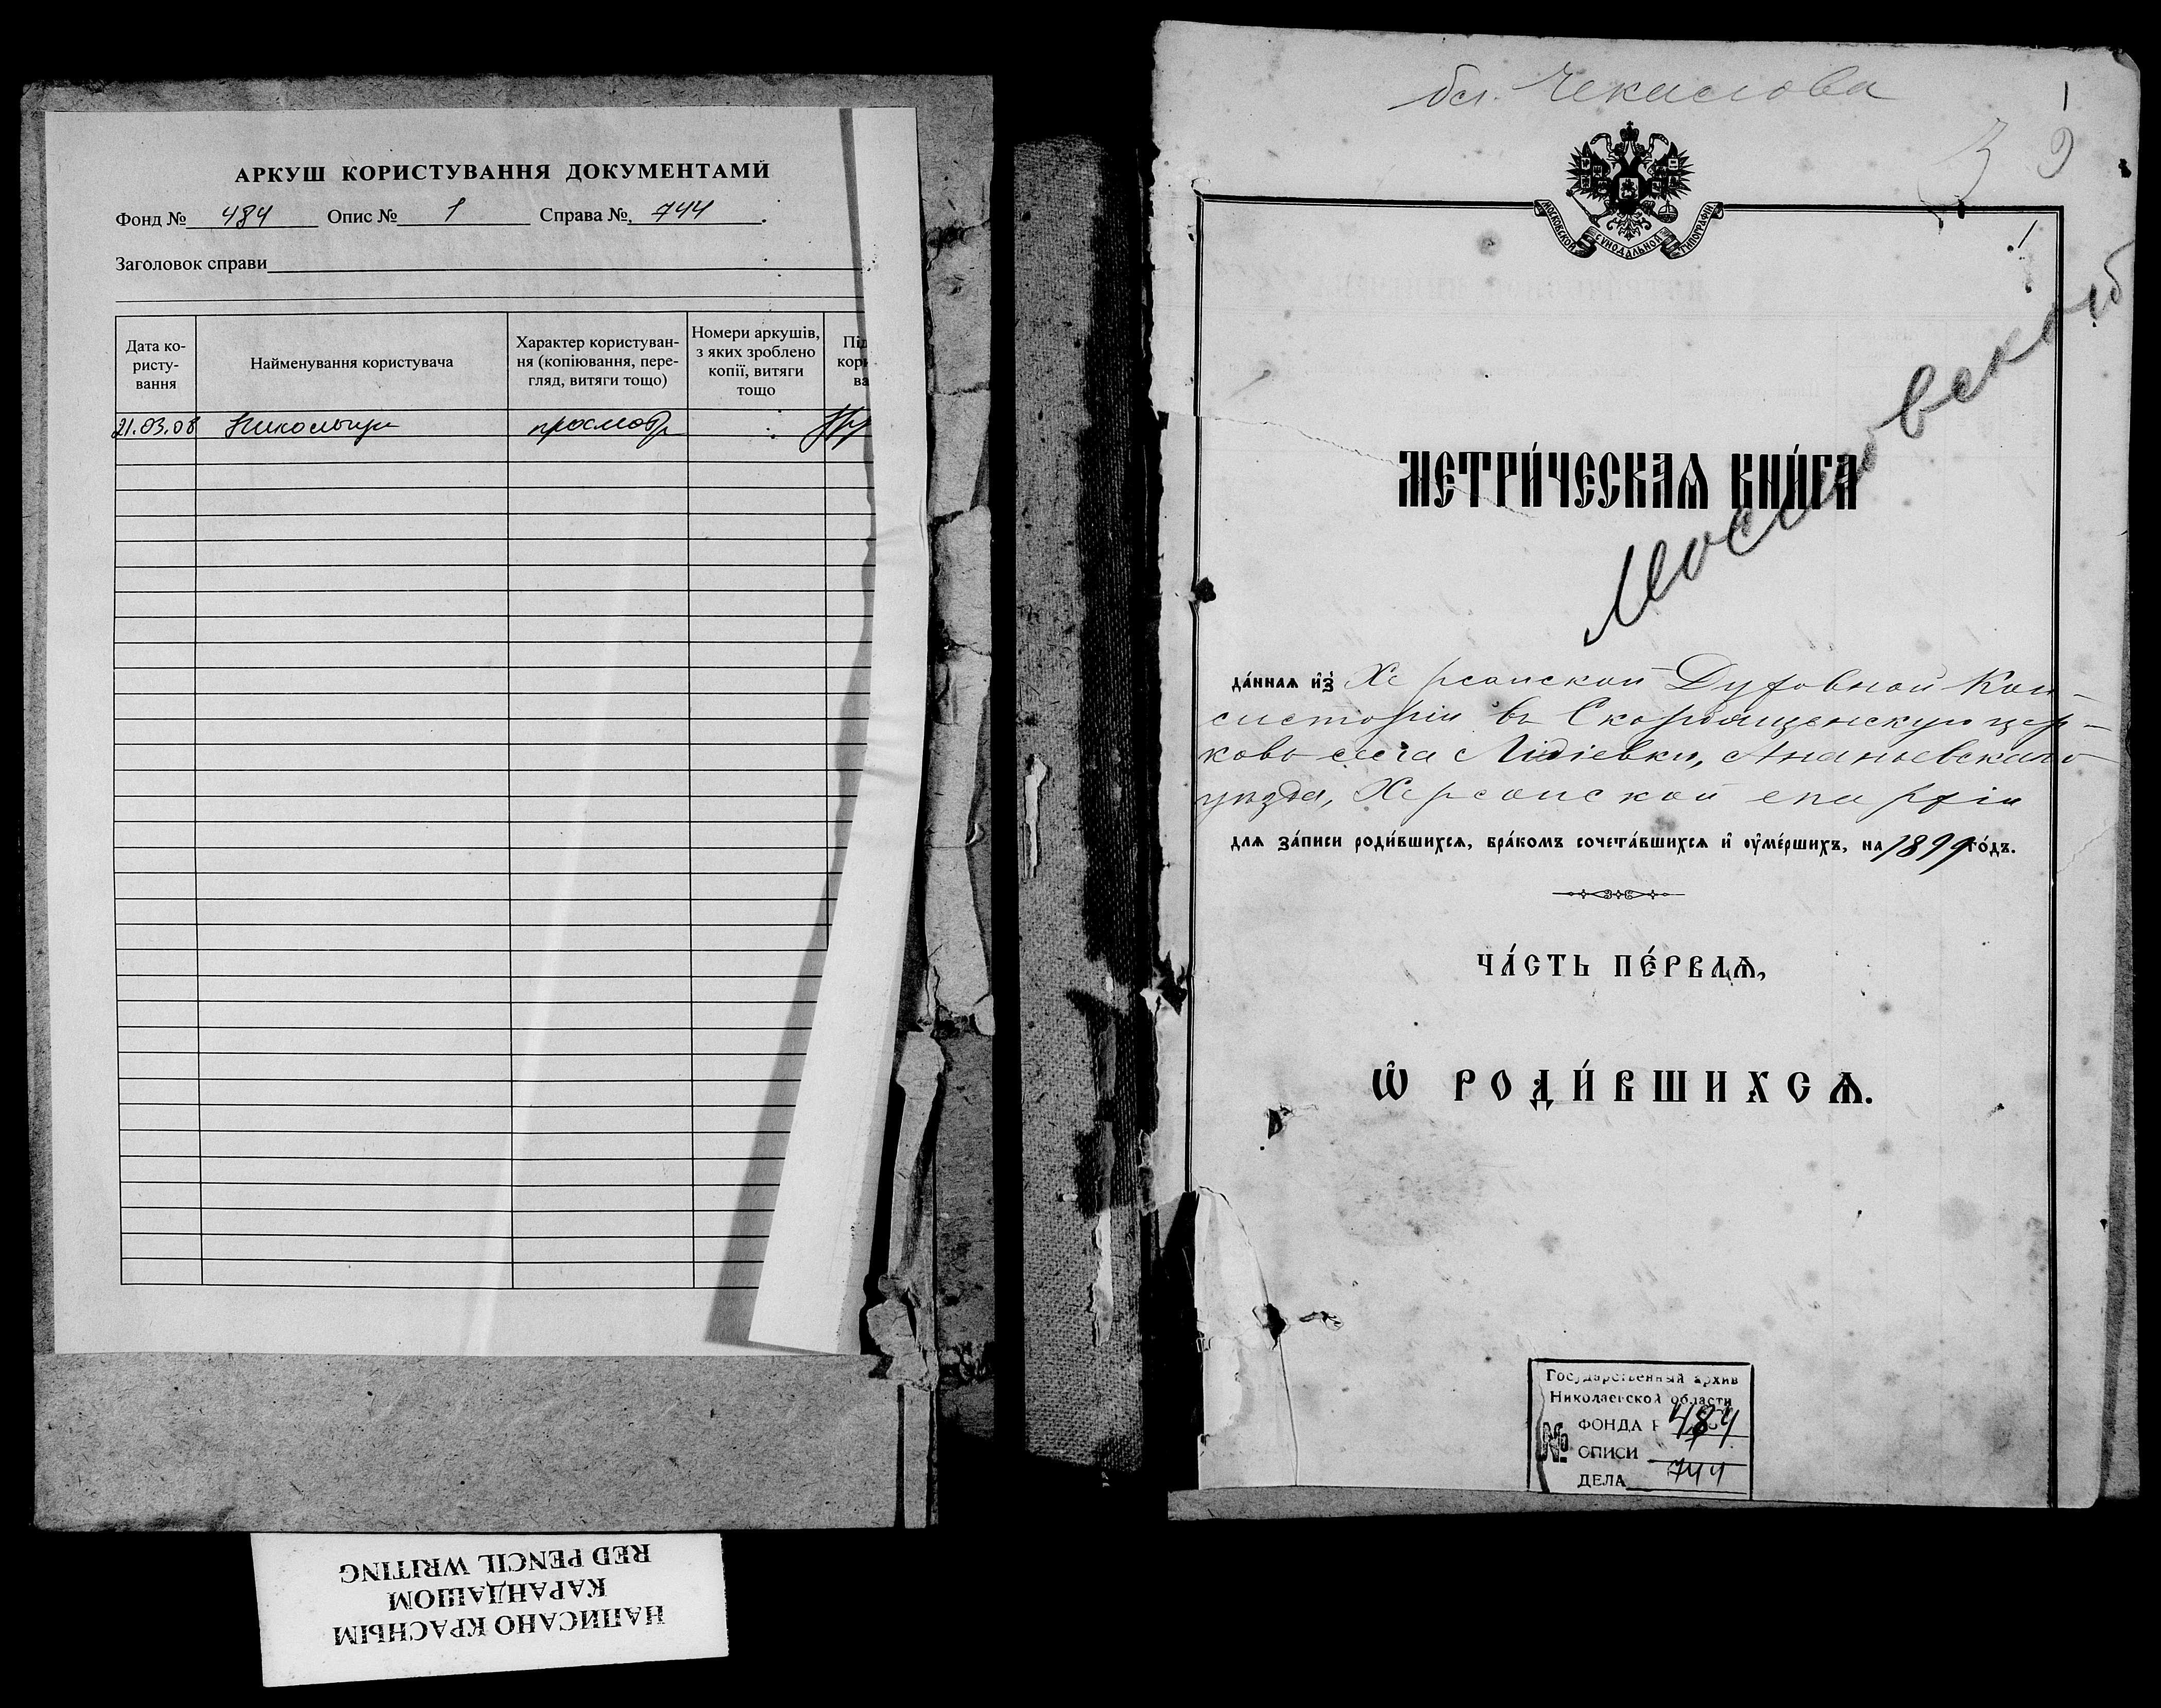 АРКУШ КОРИСТУВАННЯ ДОКУМЕНТАМИ
Фонд № 484 Опис № 1 Справа № 744
Заголовок справи
Дата ко-
ристу-
вання
Найменування користувача
Характер користуван-
ня (копіювання, пере-
гляд, витяги тощо)
Номери аркушів,
з яких зроблено
копії, витяги
тощо
Під
кори
ва
21.03.08 просмотр
НАПИСАНО КРАСНЫМ
КАРАНДАШОМ
RED PENCIL WRITING
1
МОСКОВСКОЙ СѴНОДАЛЬНОЙ ТИПОГРАФІИ
1
МЕТРИ́ЧЕСКАѦ КНИ́ГА
да́ннаѧ и҆з̾ Херсонской Духовной Кон-
систоріи въ Скорбященскую цер-
ковь села Лидіевки, Ананьевскаго
уѣзда, Херсонской епархіи
для за́писи роди́вшихсѧ, бра́комъ сочета́вшихсѧ и҆ ᲂу҆ме́ршихъ, на 1899 го́дъ.
ЧА́СТЬ ПЕ́РВАѦ,
Ѡ҆ РОДИ́ВШИХСѦ.
Государственный архив
Николаевской области
№ ФОНДА Р 484
ОПИСИ
ДЕЛА 744